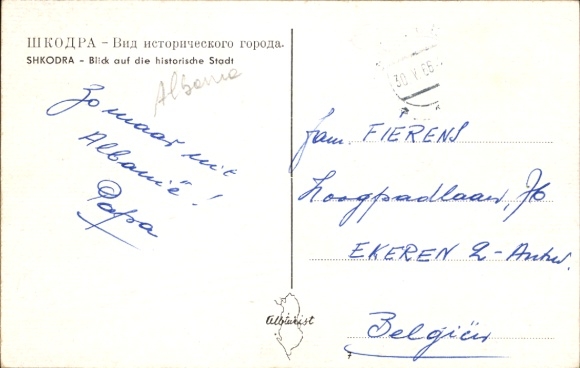 ШКОДРА – Вид исторического города.
SHKODRA – Blick auf die historische Stadt
Albania
Zo maar uit
Albanië!
Papa
30 V 66
Fam. FIERENS
Hoogpadlaan, 76
EKEREN 2 - Antw.
België
Albturist